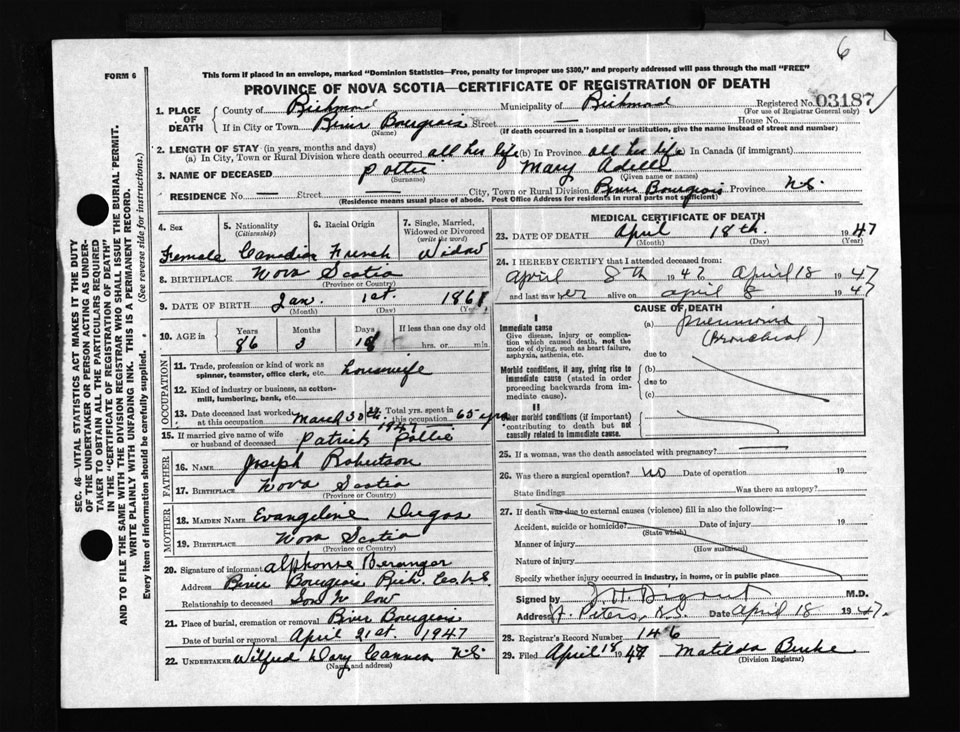 6
FORM 6
This form if placed in an envelope, marked "Dominion Statistics—Free, penalty for improper use $300," and properly addressed will pass through the mail "FREE"
PROVINCE OF NOVA SCOTIA—CERTIFICATE OF REGISTRATION OF DEATH
SEC. 46—VITAL STATISTICS ACT MAKES IT THE DUTY
OF THE UNDERTAKER OR PERSON ACTING AS UNDER-
TAKER TO OBTAIN ALL THE PARTICULARS REQUIRED
IN THE "CERTIFICATE OF REGISTRATION OF DEATH"
AND TO FILE THE SAME WITH THE DIVISION REGISTRAR WHO SHALL ISSUE THE BURIAL PERMIT.
WRITE PLAINLY WITH UNFADING INK. THIS IS A PERMANENT RECORD.
Every item of information should be carefully supplied. (See reverse side for instructions.)
1. PLACE OF DEATH County of Richmond Municipality of Richmond Registered No. 03187
(For use of Registrar General only)
If in City or Town River Bourgeois Street — House No.
(Name) (If death occurred in a hospital or institution, give the name instead of street and number)
2. LENGTH OF STAY (in years, months and days)
(a) In City, Town or Rural Division where death occurred all her life (b) In Province all her life In Canada (if immigrant)
3. NAME OF DECEASED Pottie Mary Adell
(Surname) (Given name or names)
RESIDENCE No. — Street — City, Town or Rural Division River Bourgeois Province N.S.
(Residence means usual place of abode. Post Office Address for residents in rural parts not sufficient)
4. Sex Female
5. Nationality (Citizenship) Canadian
6. Racial Origin French
7. Single, Married, Widowed or Divorced (write the word) Widow
8. BIRTHPLACE Nova Scotia
(Province or Country)
9. DATE OF BIRTH Jan. 1st. 1861
(Month) (Day) (Year)
10. AGE in Years 86 Months 3 Days 18 If less than one day old hrs. or min.
OCCUPATION
11. Trade, profession or kind of work as spinner, teamster, office clerk, etc. housewife
12. Kind of industry or business, as cotton-mill, lumbering, bank, etc.
13. Date deceased last worked at this occupation March 30th 1947 Total yrs. spent in this occupation 65 yrs
15. If married give name of wife or husband of deceased Patrick Pottie
FATHER
16. NAME Joseph Robertson
17. BIRTHPLACE Nova Scotia
(Province or Country)
MOTHER
18. MAIDEN NAME Evangeline Dugas
19. BIRTHPLACE Nova Scotia
(Province or Country)
20. Signature of informant Alphonse Beranger
Address River Bourgeois Rich. Co. N.S.
Relationship to deceased Son in law
21. Place of burial, cremation or removal River Bourgeois
Date of burial or removal April 21st. 1947
22. UNDERTAKER Wilfred N.S.
(Name and address)
MEDICAL CERTIFICATE OF DEATH
23. DATE OF DEATH April 18th. 1947
(Month) (Day) (Year)
24. I HEREBY CERTIFY that I attended deceased from:
April 8th 1947 to April 18 1947
and last saw her alive on April 8 1947
CAUSE OF DEATH
I
Immediate cause
Give disease, injury or complication which caused death, not the mode of dying, such as heart failure, asphyxia, asthenia, etc.
(a) Pneumonia (Bronchial)
due to
Morbid conditions, if any, giving rise to immediate cause (stated in order proceeding backwards from immediate cause).
(b)
due to
(c)
II
Other morbid conditions (if important) contributing to death but not causally related to immediate cause.
25. If a woman, was the death associated with pregnancy?
26. Was there a surgical operation? No Date of operation 19
State findings Was there an autopsy?
27. If death was due to external causes (violence) fill in also the following:—
Accident, suicide or homicide? Date of injury 19
(State which)
Manner of injury
(How sustained)
Nature of injury
Specify whether injury occurred in industry, in home, or in public place
Signed by M.D.
Address St. Peters, N.S. Date April 18 1947.
28. Registrar's Record Number 146
29. Filed April 18 1947 Matilda Burke
(Division Registrar)